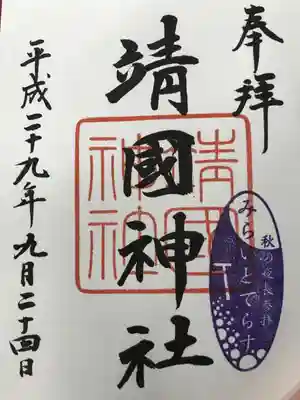 奉拝
靖國神社
靖國
神社
秋の夜長参拝
みらいとてらす
平成二十九年九月二十四日